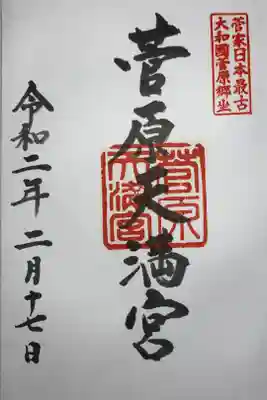 菅家日本最古
大和國菅原郷坐
菅原天満宮
菅原
天満宮
令和二年二月十七日